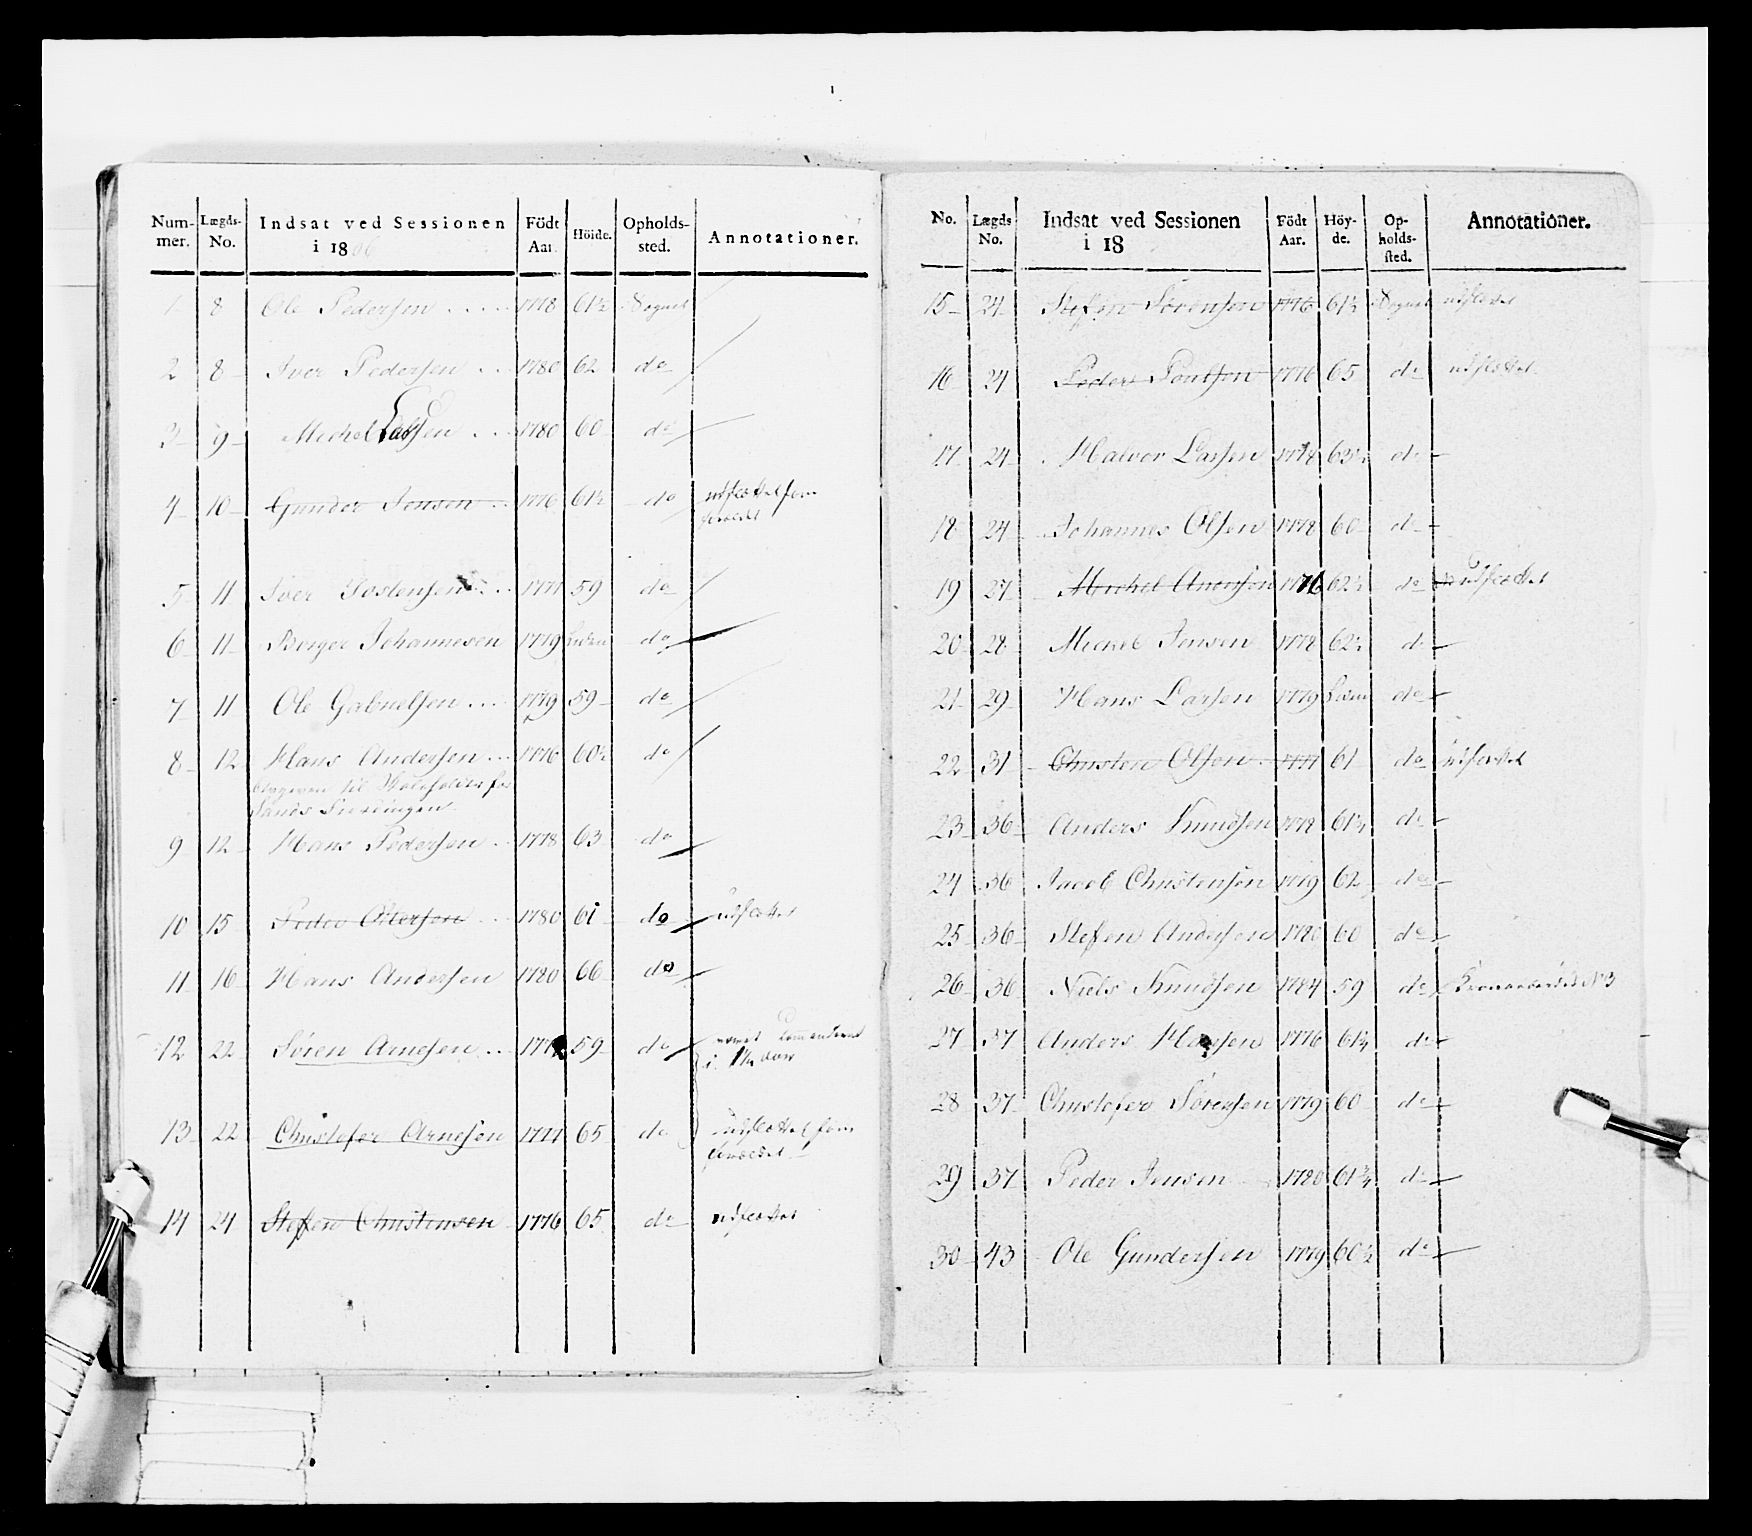 Num-mer. Lægds-No. Indsat ved Sessionen i 1806 Födt Aar. Höide. Opholds-sted. Annotationer.
1 8 Ole Pedersen 1778 61½ Sognet
2 8 Iver Pedersen 1780 62 do
3 9 Michel Larsen 1780 60 do
4 10 Gunder Jensen 1776 61½ do udslettet som
foreldet
5 11 Iver Tostensen 1777 59 do
6 11 Borger Johannesen 1779 liden do
7 11 Ole Gabrielsen 1779 59 do
8 12 Hans Andersen 1776 60½ do
opgiven til
Sands
9 12 Hans Pedersen 1778 63 do
10 15 Peder Ottersen 1780 61 do udslettet
11 16 Hans Andersen 1780 66 do
12 22 Sören Arnesen 59 do været Commanderet
i
13 22 Christofer Arnesen 1777 65 do udslettet som
foreldet
14 24 Stefen Christensen 1776 65 do udslettet
No. Lægds No. Indsat ved Sessionen i 18 Födt Aar. Höy-de. Op-holds-sted. Annotationer.
15 24 Stefen Sörensen 1776 61½ Sognet udslettet
16 24 Peder Poulsen 1776 65 do udslettet
17 24 Halvor Larsen 1778 63½ do
18 24 Johannes Olsen 1778 60 do
19 27 Michel Anersen 1776 62½ do udslettet
20 28 Michel Jensen 1778 62½ do
21 29 Hans Larsen 1779 liden do
22 31 Christen Olsen 1777 61 do udslettet
23 36 Anders Knudsen 1778 61½ do
24 36 Jacob Christensen 1779 62 do
25 36 Stefen Andersen 1780 60 do
26 36 Niels Knudsen 1784 59 do No 3
27 37 Anders Hansen 1776 61¼ do
28 37 Christofer Sörensen 1779 60 do
29 37 Peder Jensen 1780 61¾ do
30 43 Ole Gundersen 1779 60½ do